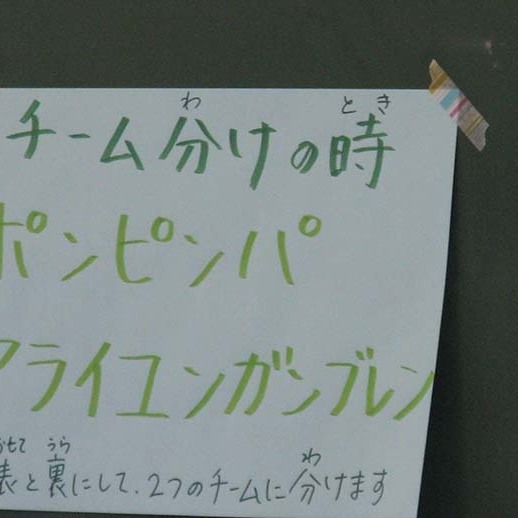 わ とき
チーム分けの時
ポンピンパ
アライユンガンブレン
おもて うら わ
表と裏にして、2つのチームに分けます